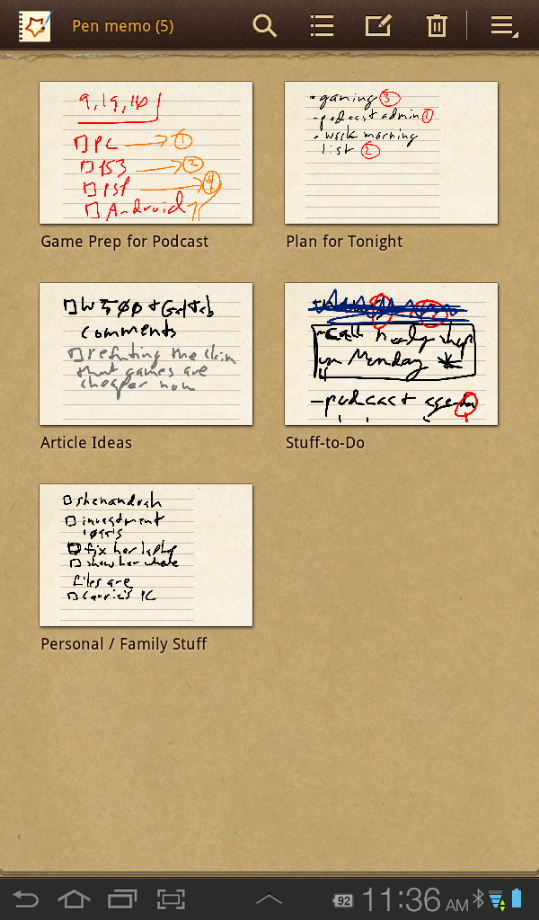 Pen memo (5)
9, 19, 16
PC → 1
PS3 → 2
PSP → 4
Android
Game Prep for Podcast
- gaming 3
- podcast admin 1
- work morning
list 2
Plan for Tonight
comments
refuting the claim
that games are
cheaper now
Article Ideas
- Call
on Monday *
- podcast agenda
Stuff-to-Do
shenandoah
investment
goals
fix her laptop
show her where
files are
Carrie's PC
Personal / Family Stuff
92 11:36 AM